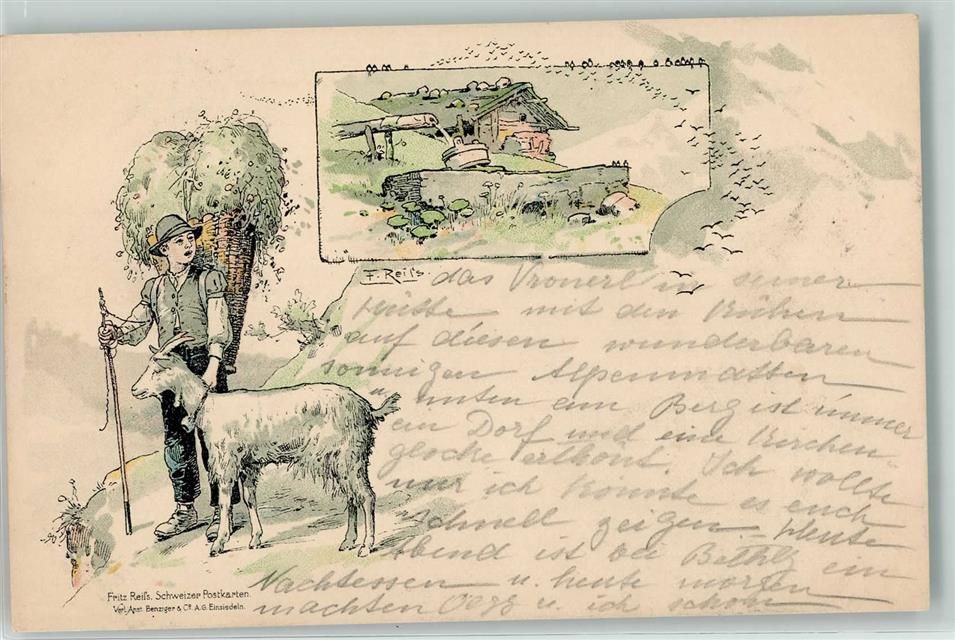 F. Reiſs.
das Vronerl in seiner
Hütte mit den Kühen
auf diesen wunderbaren
sonnigen Alpenmatten
unten am Berg ist immer
ein Dorf und eine Kirchen
glocke ertönt. Ich wollte
nur ich könnte es euch
schnell zeigen. Heute
Abend ist bei Bethly ein
Nachtessen u. heute morgen
machten u. ich schon
Fritz Reiſs. Schweizer Postkarten.
Verl. Anst. Benziger & Co. A.G. Einsiedeln.